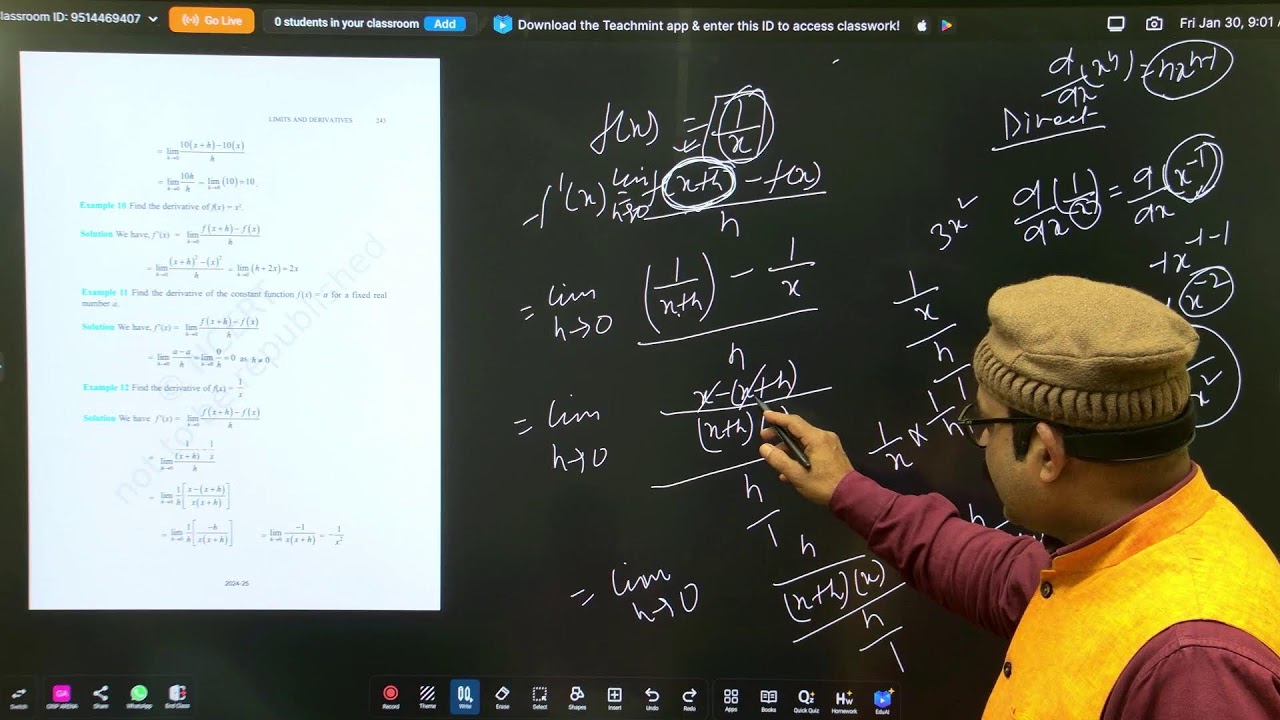 lassroom ID: 9514469407
Go Live
0 students in your classroom Add
Download the Teachmint app & enter this ID to access classwork!
Fri Jan 30, 9:01
LIMITS AND DERIVATIVES 243
= lim h→0 10(x+h)−10(x) / h
= lim h→0 10h / h = lim h→0 (10) = 10.
Example 10 Find the derivative of f(x) = x².
Solution We have, f′(x) = lim h→0 f(x+h)−f(x) / h
= lim h→0 (x+h)²−(x)² / h = lim h→0 (h+2x) = 2x
Example 11 Find the derivative of the constant function f(x) = a for a fixed real
number a.
Solution We have, f′(x) = lim h→0 f(x+h)−f(x) / h
= lim h→0 a−a / h = lim h→0 0/h = 0 as h ≠ 0
Example 12 Find the derivative of f(x) = 1/x
Solution We have f′(x) = lim h→0 f(x+h)−f(x) / h
= lim h→0 1/(x+h) − 1/x / h
= lim h→0 1/h [x−(x+h) / x(x+h)]
= lim h→0 1/h [−h / x(x+h)] = lim h→0 −1 / x(x+h) = −1/x²
2024-25
not to be republished
f(x) = 1/x
f'(x) lim h→0 f(x+h) − f(x) / h
= lim h→0 (1/x+h) − 1/x / h
= lim h→0 x−(x+h) / (x+h) / h/1
= lim h→0 h / (x+h)(x) / h/1
3x²
1/x / h/1
1/x × 1/h
d/dx (xⁿ) = nxⁿ⁻¹
Direct
d/dx (1/x) = d/dx x⁻¹
x⁻¹⁻¹
x⁻²
x²
Switch
GRIP ARENA
Share
WhatsApp
End Class
Record
Theme
Write
Erase
Select
Shapes
Insert
Undo
Redo
Apps
Books
Quick Quiz
Homework
EduAI